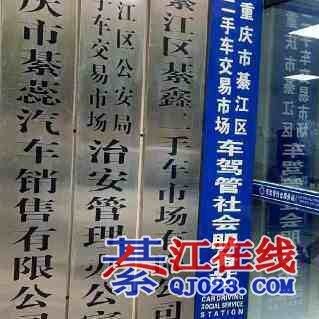 庆市綦蕊汽车销售有限公司
綦江区公安局
二手车交易市场
治安管理办公室
綦江区綦鑫二手车市场有限公司
重庆市綦江区
二手车交易市场
车驾管社会服务站
CAR DRIVING
SOCIAL SERVICE
STATION
綦江在线
QJ023.COM